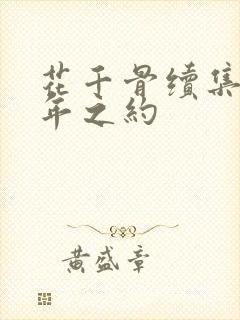 花千骨續集
年之約
黃盛章